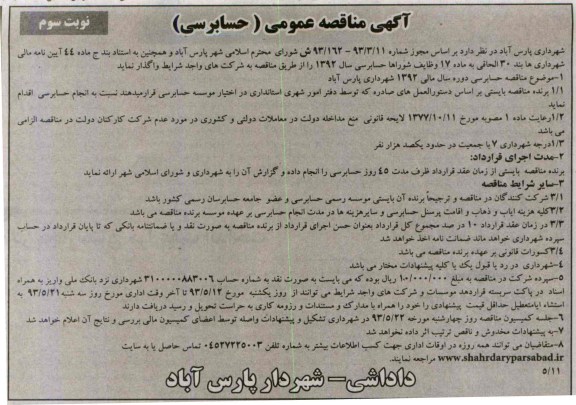 آگهی مناقصه عمومی ( حسابرسی)
نوبت سوم
شهرداری پارس آباد در نظر دارد بر اساس مجوز شماره ۹۳/۳/۱۱ – ۹۳/۱۶۲ ش شورای محترم اسلامی شهر پارس آباد و همچنین به استناد بند ج ماده ۴۴ آیین نامه مالی
شهرداری ها بند ۳۰ الحاقی به ماده ۱۷ وظایف شوراها حسابرسی سال ۱۳۹۲ را از طریق مناقصه به شرکت های واجد شرایط واگذار نماید
۱-موضوع مناقصه حسابرسی دوره سال مالی ۱۳۹۲ شهرداری پارس آباد
۱/۱ برنده مناقصه بایستی بر اساس دستورالعمل های صادره که توسط دفتر امور شهری استانداری در اختیار موسسه حسابرسی قرارمیدهند نسبت به انجام حسابرسی اقدام
نماید
۱/۲رعایت ماده ۱ مصوبه مورخ ۱۳۷۷/۱۰/۱۱ لایحه قانونی منع مداخله دولت در معاملات دولتی و کشوری در مورد عدم شرکت کارکنان دولت در مناقصه الزامی
می باشد
۱/۳درجه شهرداری ۷ با جمعیت در حدود یکصد هزار نفر
۲-مدت اجرای قرارداد:
برنده مناقصه بایستی از زمان عقد قرارداد ظرف مدت ۴۵ روز حسابرسی را انجام داده و گزارش آن را به شهرداری و شورای اسلامی شهر ارائه نماید
۳-سایر شرایط مناقصه
۳/۱ شرکت کنندگان در مناقصه و ترجیحاً برنده آن بایستی موسسه رسمی حسابرسی و عضو جامعه حسابرسان رسمی کشور باشد
۳/۲کلیه هزینه ایاب و ذهاب و اقامت پرسنل حسابرسی و سایرهزینه ها در مدت انجام حسابرسی بر عهده موسسه برنده مناقصه می باشد
۳/۳ در زمان عقد قرارداد ۱۰ در صد مجموع کل قرارداد بعنوان حسن اجرای قرارداد از برنده مناقصه به صورت نقد و یا ضمانتنامه بانکی که تا پایان قرارداد در حساب
سپرده شهرداری خواهد ماند ضمانت نامه اخذ خواهد شد
۳/۴کسورات قانونی بر عهده برنده مناقصه می باشد
۴-شهرداری در رد یا قبول یک یا کلیه پیشنهادات مختار می باشد
۵-سپرده شرکت در مناقصه به مبلغ ۱۰/۰۰۰/۰۰۰ ریال بوده که می بایست به صورت نقد به شماره حساب ۳۱۰۰۰۰۰۸۸۳۰۰۶ شهرداری نزد بانک ملی واریز به همراه
اسناد در پاکت سربسته قراردهد موسسات و شرکت های واجد شرایط می توانند از روز یکشنبه مورخ ۹۳/۵/۱۲ تا آخر وقت اداری مورخ روز سه شنبه ۹۳/۵/۲۱ به
استثناء ایام تعطیل حداقل قیمت پیشنهادی را خود را همراه با مدارک و مستندات و رزومه کاری به حراست تحویل و رسید دریافت دارند
۶-جلسه کمیسیون مناقصه روز چهارشنبه مورخه ۹۳/۵/۲۲ در شهرداری تشکیل و پیشنهادات واصله توسط اعضای کمیسیون مالی بررسی و نتایج آن اعلام خواهد شد
۷-به پیشنهادات مخدوش و ناقص ترتیب اثر داده نخواهد شد
۸-متقاضیان می توانند همه روزه در اوقات اداری جهت کسب اطلاعات بیشتر به شماره تلفن ۰۴۵۲۷۲۲۵۰۰۳ تماس حاصل یا به سایت
www.shahrdaryparsabad.ir مراجعه نمایند.
۵/۱۱
داداشی– شهردار پارس آباد